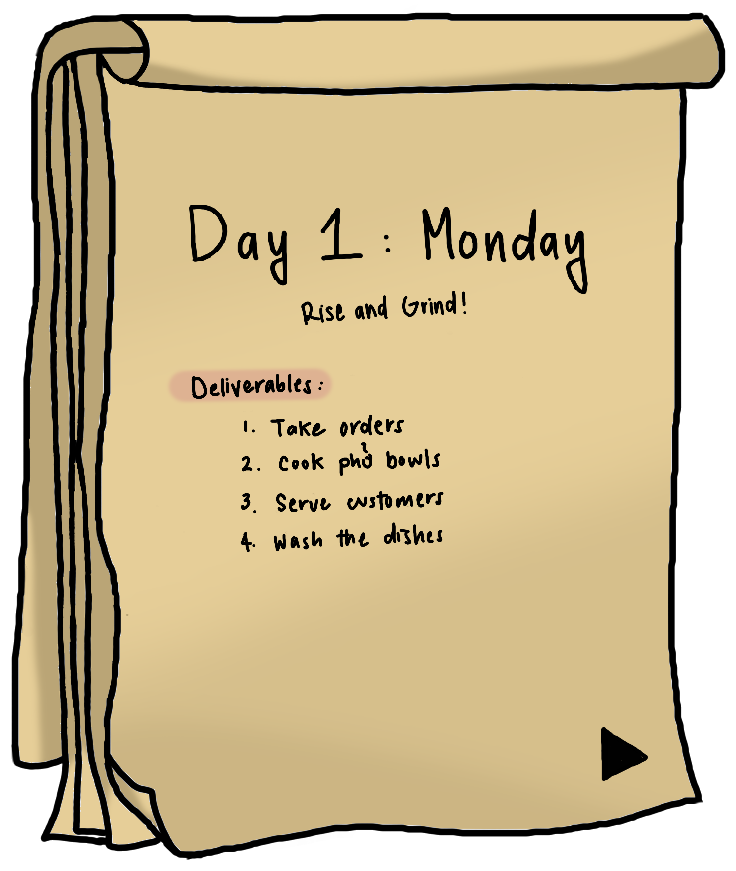 Day 1 : Monday
Rise and Grind!
Deliverables:
1. Take orders
2. Cook phở bowls
3. Serve customers
4. Wash the dishes